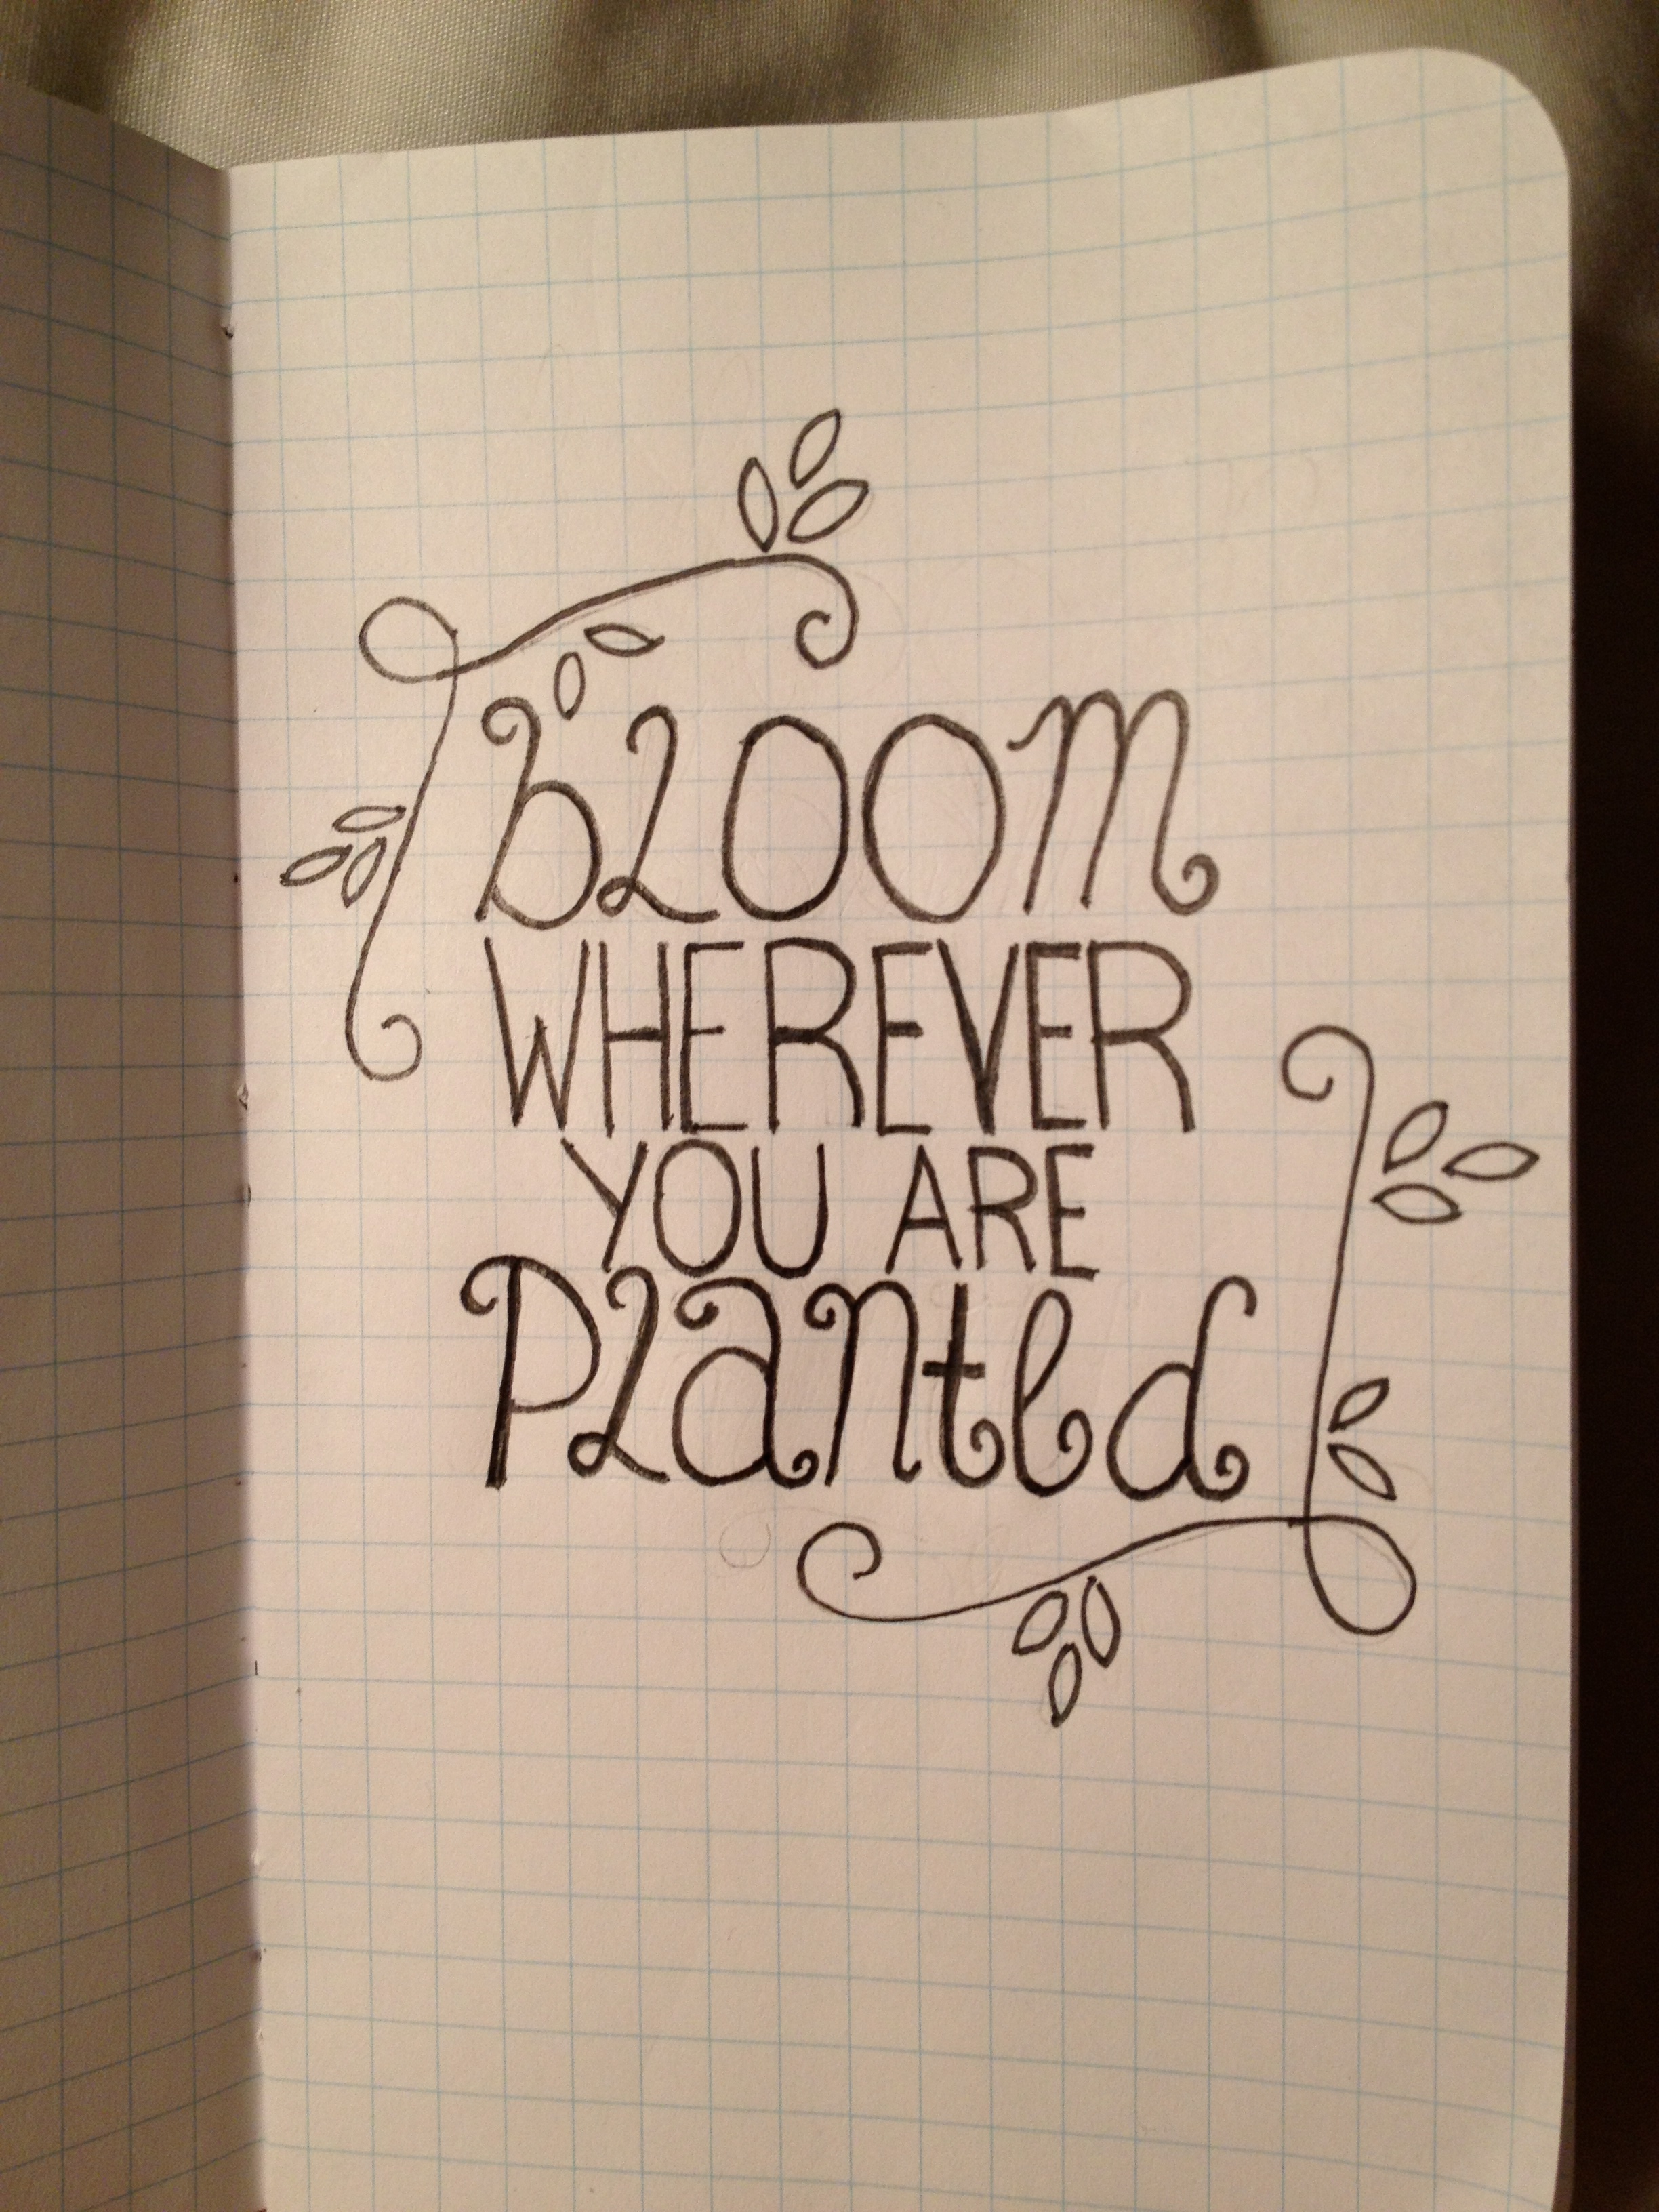 bLOOM
WHEREVER
YOU ARE
PLanted